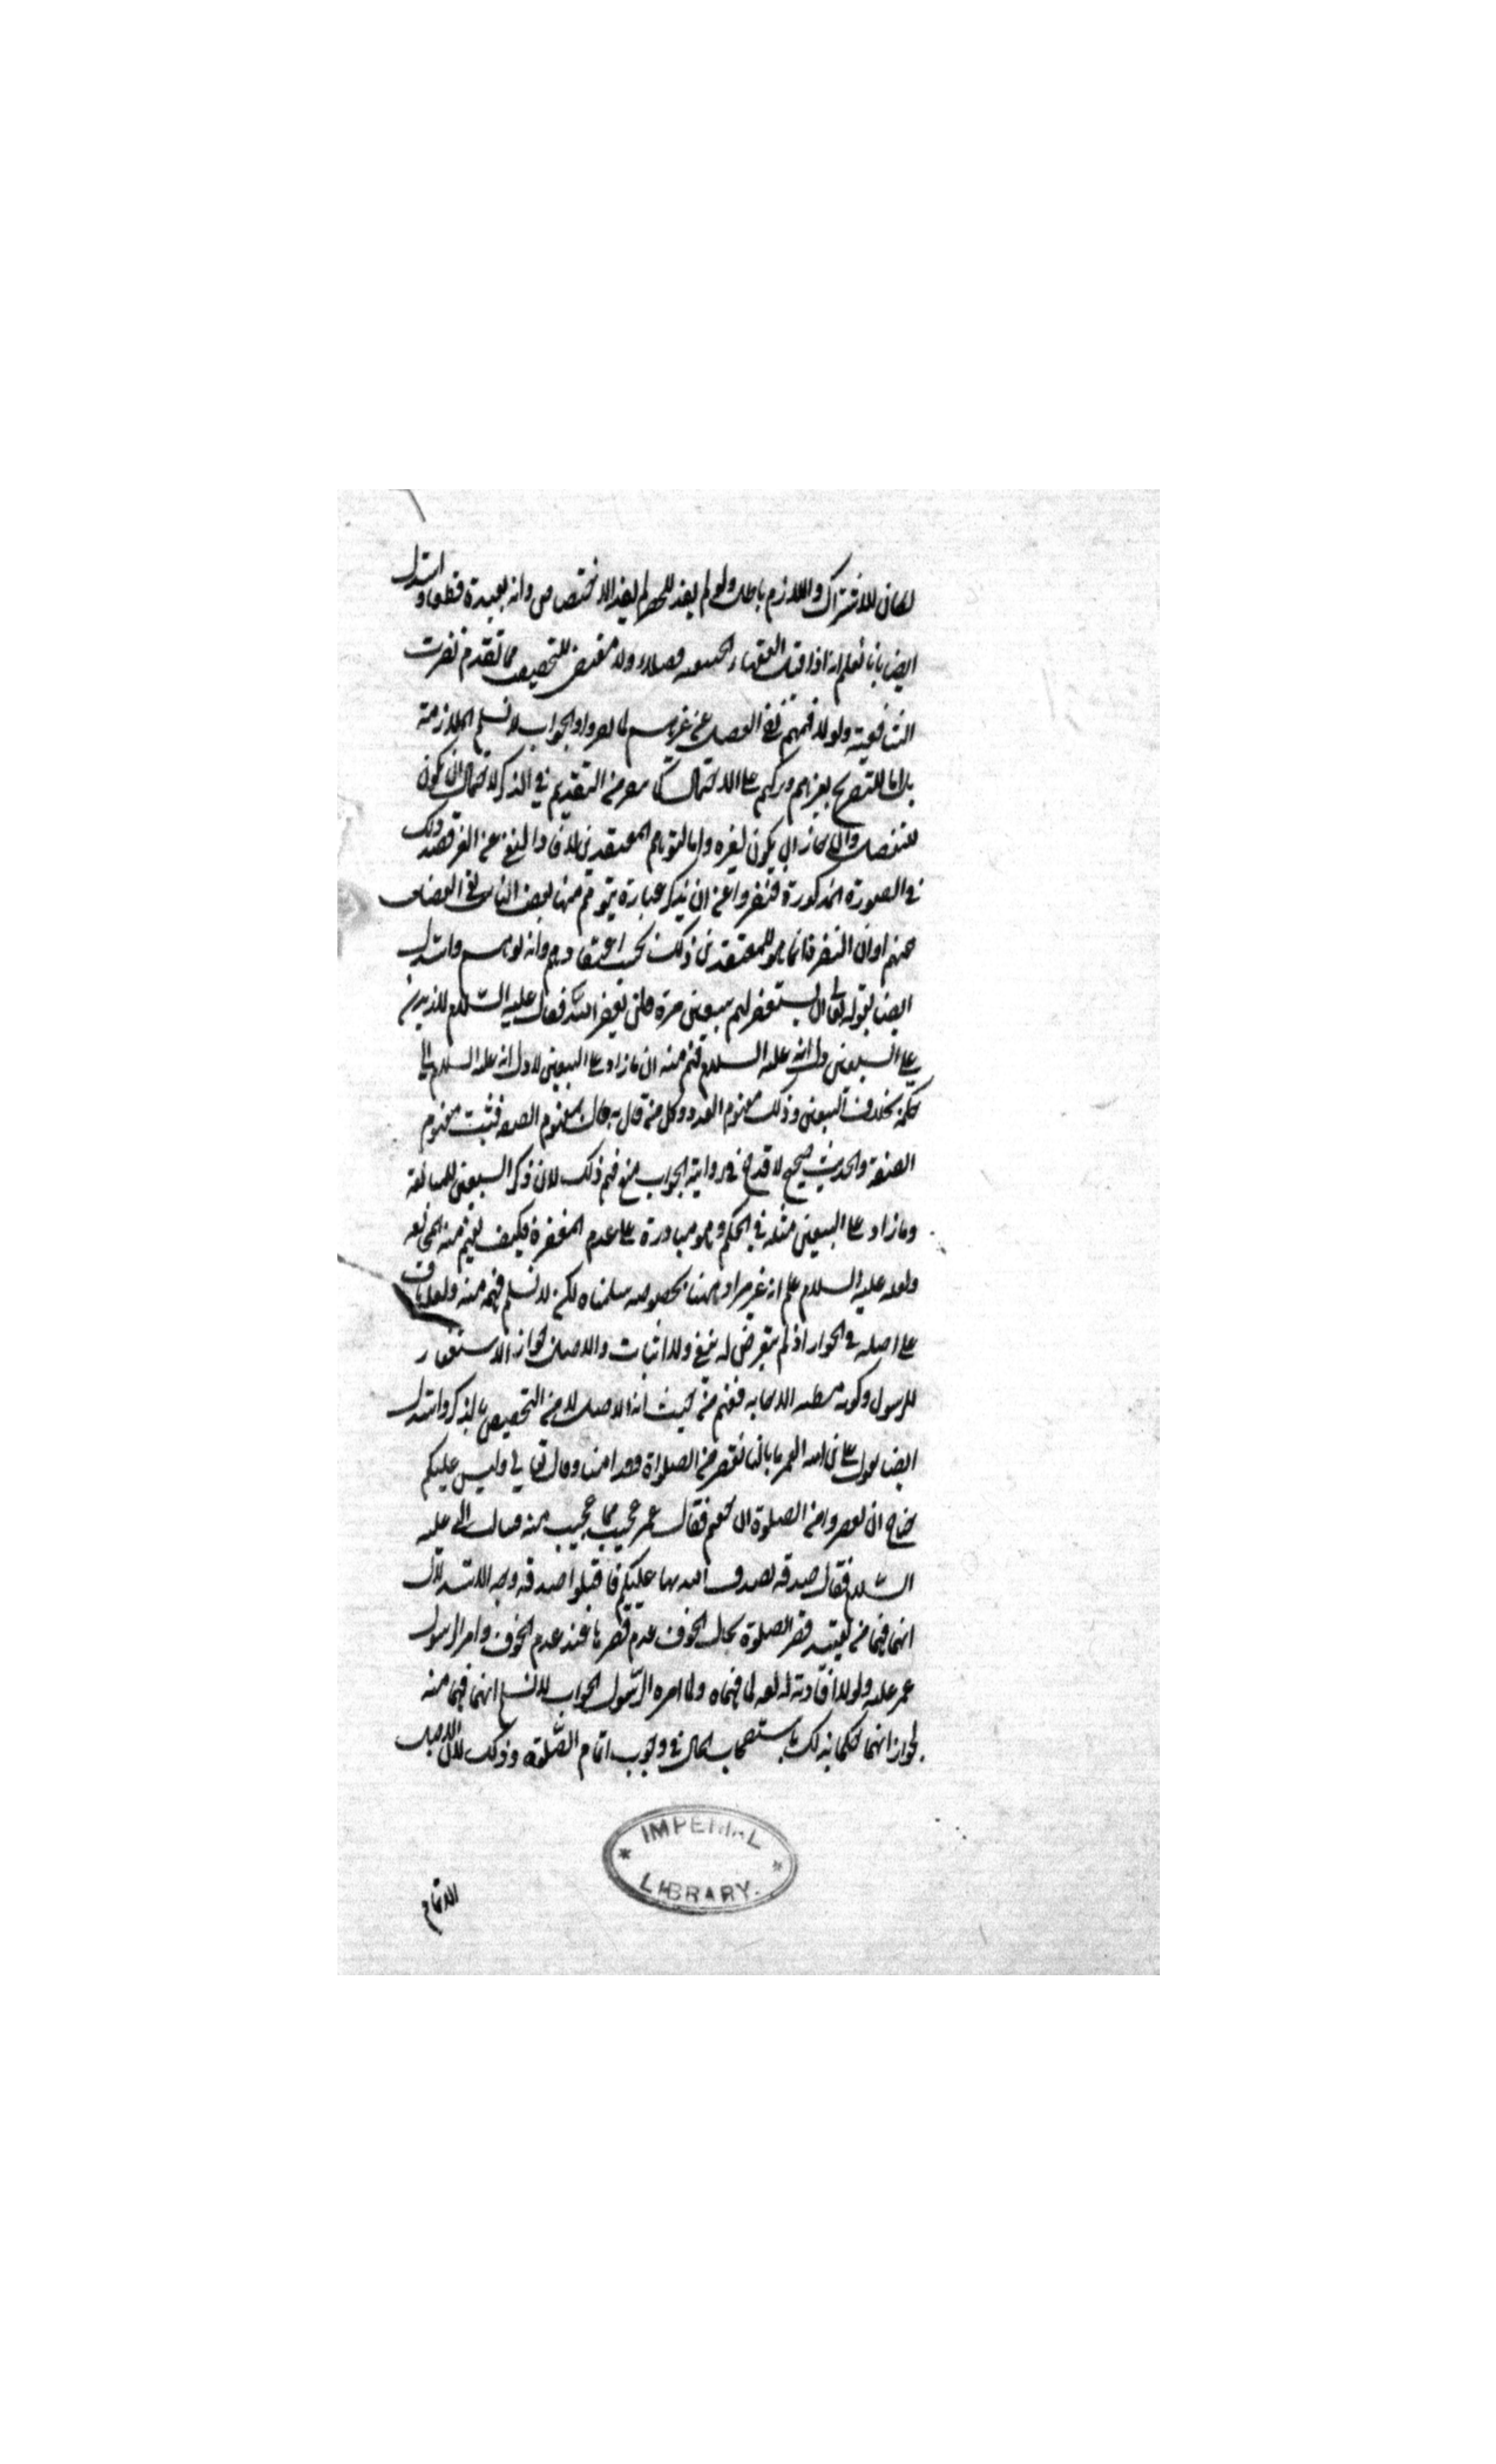 لكان للاشتراك واللازم باطل ولو لم يفد الحصر لم يفد الاختصاص وانه يفيده قطعا واستدل
ايضا بانا نعلم انه اذا قيل الفقهاء الحنفية فضلاء ولا مقتضى للتخصيص مما تقدم نفرت
الشافعية ولولا فهمهم نفي الفضل عن غيرهم لما نفروا والجواب لا نسلم الملازمة
بل اما للتصريح بغيرهم وتركهم على الاحتمال كما من التقديم في الذكر لاحتمال ان يكون
للتفضيل وان جاز ان يكون لغيره واما لتوهم المعتقدين لافادة النفي عن الغير قصد ذلك
في الصورة المذكورة فنفروا عن ان يذكر عبارة يتوهم منها بعض الناس نفي الفضل
عنهم او ان النفرة انما هو للمعتقدين ذلك بحسب اعتقادهم وانه لو واستدل
ايضا بقوله تعالى ان يستغفر لهم سبعين مرة فلن يغفر الله فقال عليه السلام لازيدن
على السبعين دل انه عليه السلام فهم منه ان ما زاد على السبعين
حكمه بخلاف السبعين وذلك مفهوم العدد وكل من قال به قال بمفهوم الصفة فثبت مفهوم
الصفة والحديث صحيح لا قدح في روايته الجواب منع فهم ذلك لان ذكر السبعين للمبالغة
وما زاد على السبعين مثله في الحكم وهو مبادرة على عدم المغفرة فكيف يفهم منه المخالفة
ولعله عليه السلام علم انه غير مراد هنا بخصوصه سلمناه لكن لا نسلم فهمه منه ولعله باق
على اصله في الجواز اذ لم يتعرض له بنفي ولا اثبات والاصل جواز الاستغفار
للرسول وكونه مظنة الاجابة ففهم من حيث انه الاصل لا من التخصيص بالذكر واستدل
ايضا بقول يعلى بن امية لعمر ما بالنا نقصر من الصلوة وقد امنا وقال تعالى وليس عليكم
جناح ان تقصروا من الصلوة ان خفتم فقال عمر عجبت مما عجبت منه فسالت النبي عليه
السلام فقال صدقة تصدق الله بها عليكم فاقبلوا صدقته وجه الاستدلال
انهما فهما من تقييد قصر الصلوة بحال الخوف عدم قصرها عند عدم الخوف واقر الرسول
عمر عليه ولولا افادته له لغة لما فهماه ولما اقره الرسول الجواب لا نسلم انهما فهما منه
لجواز انهما حكما بذلك باستصحاب الحال في وجوب اتمام الصلوة وذلك لان الاصل
الاتمام
IMPERIAL
LIBRARY